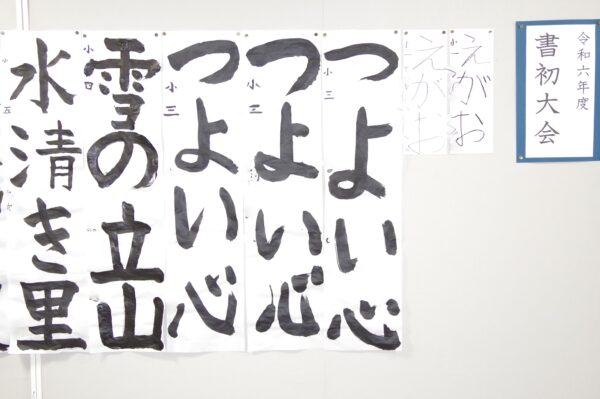 令和六年度
書初大会
えがお
小一
えがお
つよい心
小三
つよい心
小三
つよい心
小三
雪の立山
小四
水清き里
小五